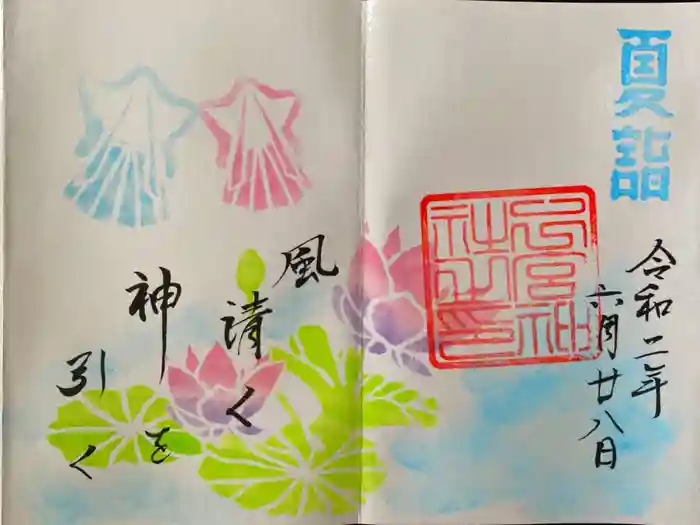 夏詣
令和二年
六月廿八日
風
清く
神を
引く